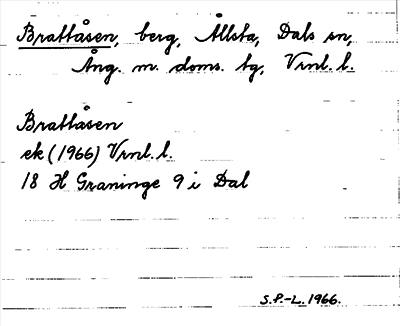 Brattåsen, berg, Ållsta, Dals sn,
Ång. m. doms. tg, Vrnl. l.
Brattåsen
ek (1966) Vrnl. l.
18 H Graninge 9 i Dal
S.P.-L. 1966.